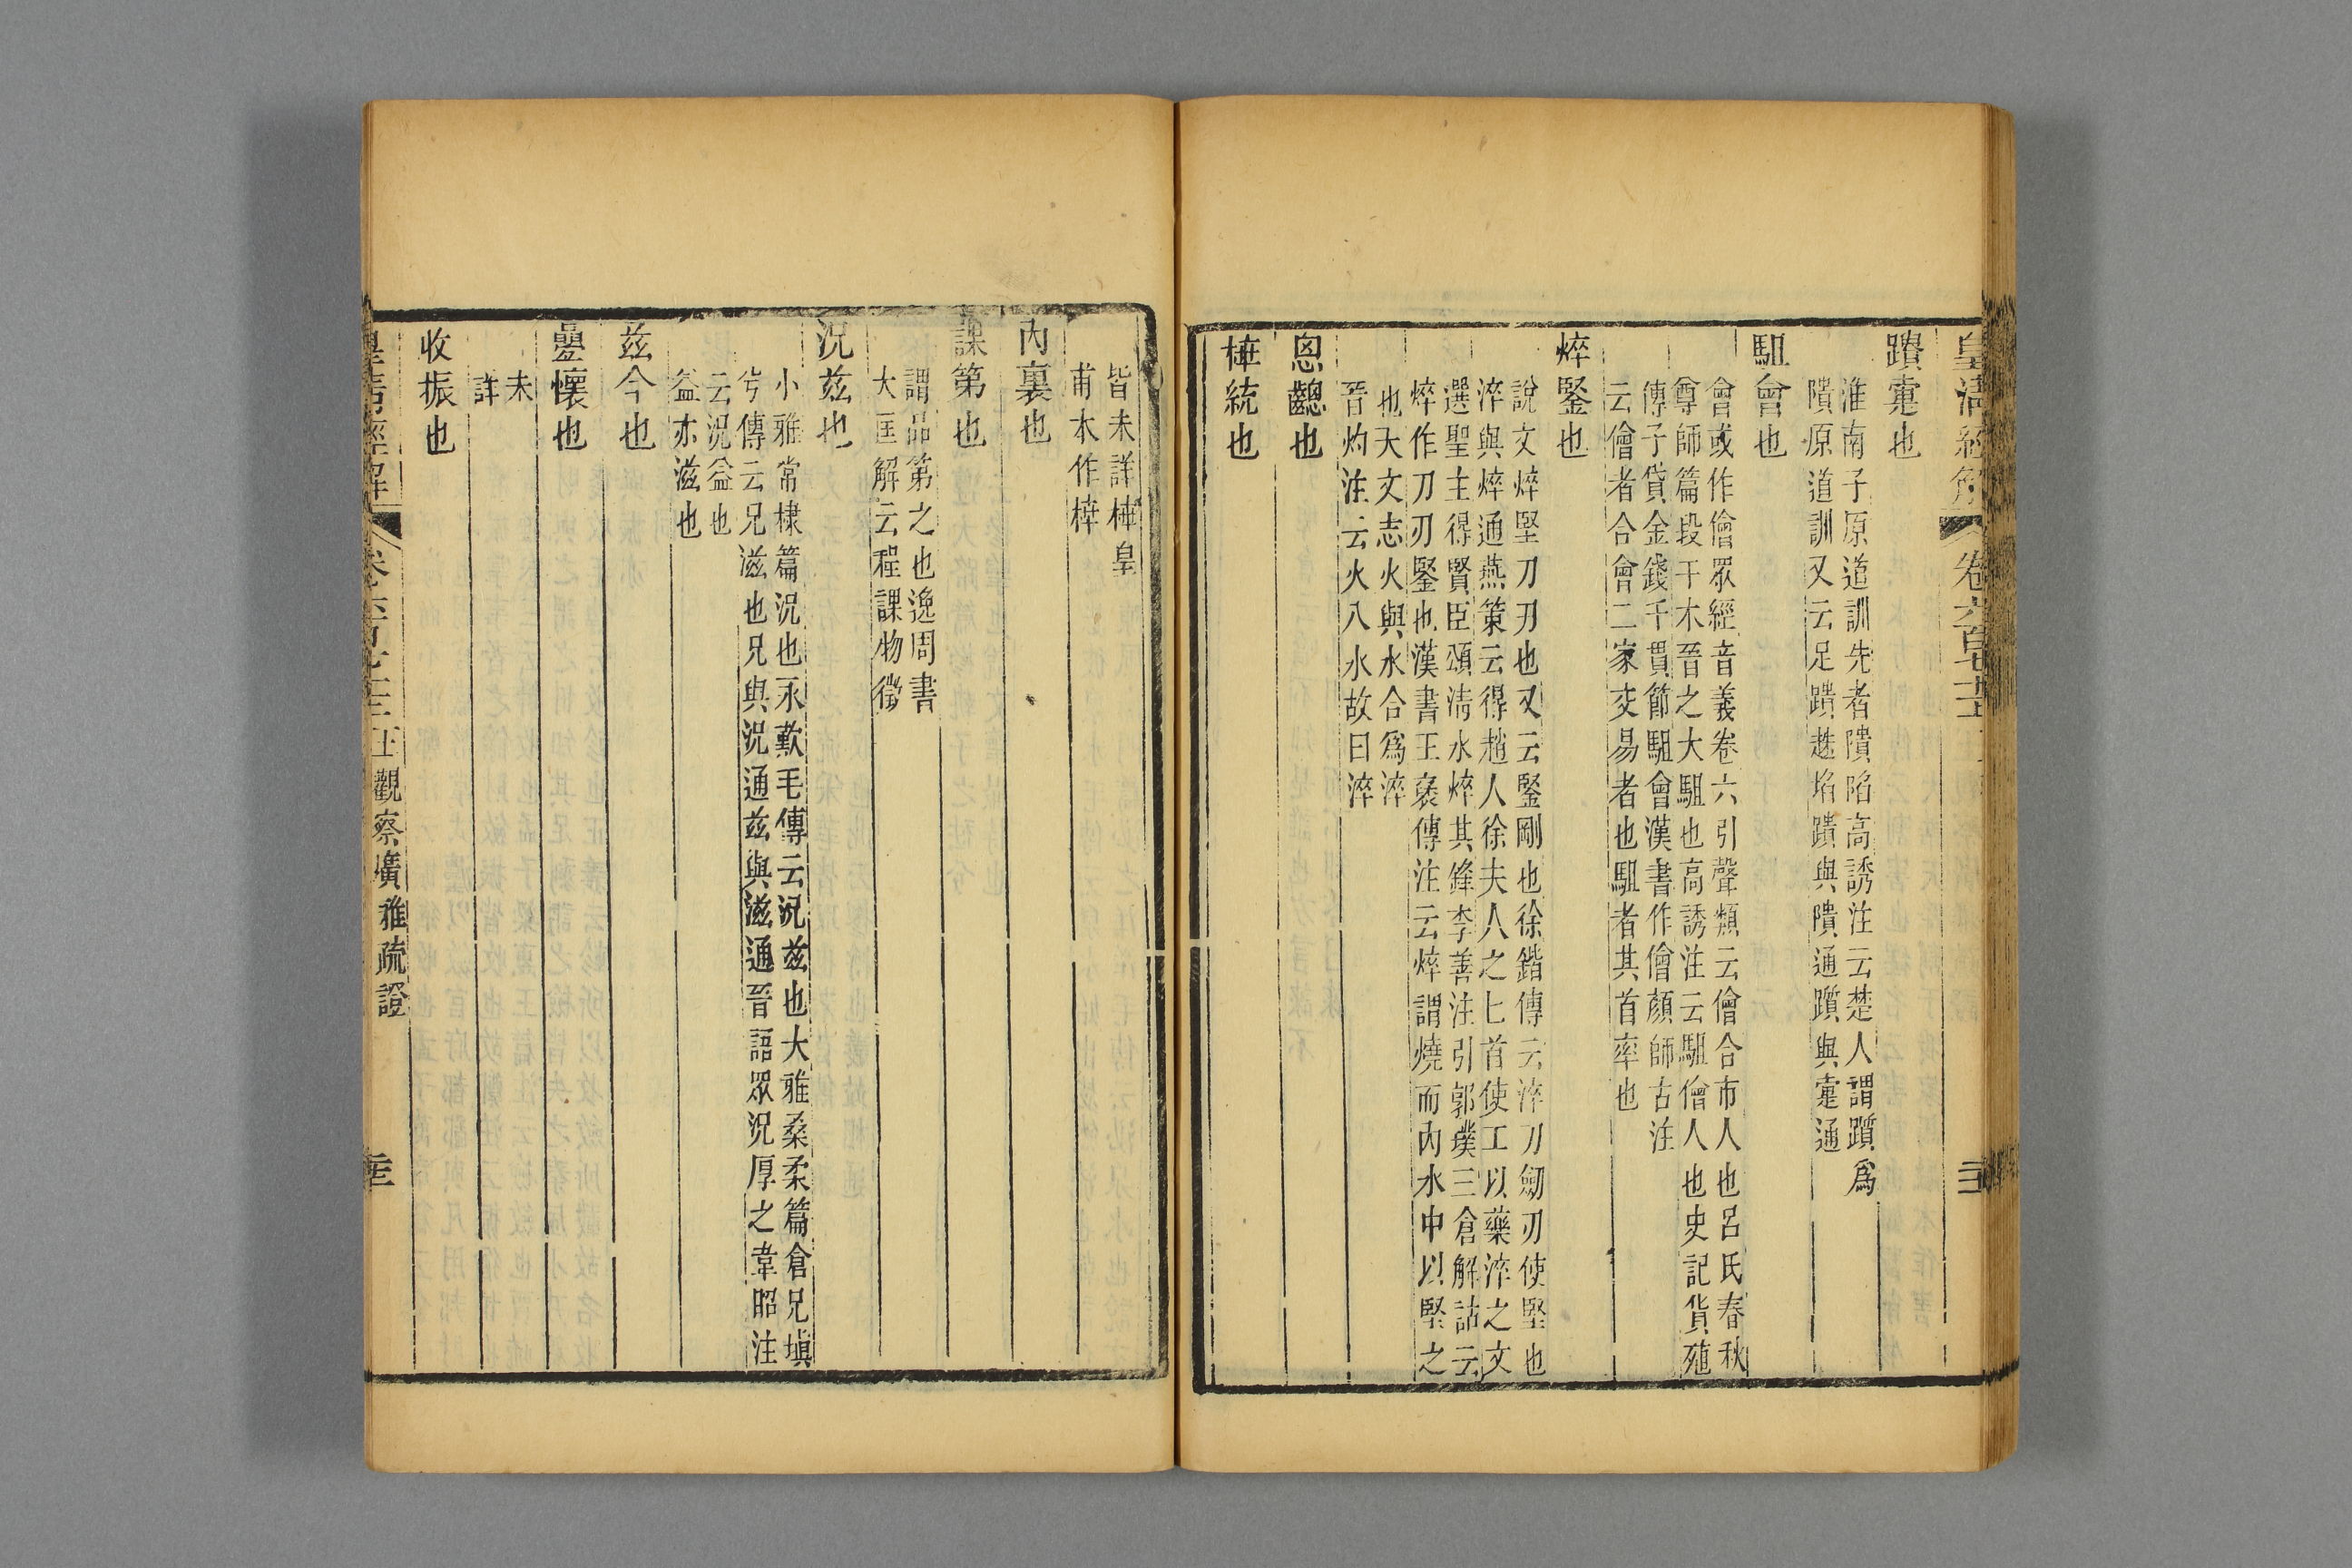 皇清經解 卷六百七十三
躓疐也
淮南子原道訓先者隤陷高誘注云楚人謂躓爲
隤原道訓又云足蹪趎埳蹪與隤通躓與疐通
駔會也
會或作儈眾經音義卷六引聲類云儈合市人也呂氏春秋
尊師篇段干木晉之大駔也高誘注云駔儈人也史記貨殖
傳子貸金錢千貫節駔會漢書作儈顏師古注
云儈者合會二家交易者也駔者其首率也
焠鋻也
說文焠堅刀刃也又云鋻剛也徐鍇傳云淬刀劒刃使堅也
淬與焠通燕策云得趙人徐夫人之匕首使工以藥淬之文
選聖主得賢臣頌清水焠其鋒李善注引郭璞三倉解詁云
焠作刀刃鋻也漢書王襃傳注云焠謂燒而內水中以堅之
也天文志火與水合爲淬
晉灼注云火入水故曰淬
恖䶴也
桻統也
皆未詳桻皇
甫本作椊
內裏也
課第也
謂品第之也逸周書
大匡解云程課物徵
況兹也
小雅常棣篇況也永歎毛傳云況兹也大雅桑柔篇倉兄塡
兮傳云兄滋也兄與況通兹與滋通晉語眾況厚之韋昭注
云況益也
益亦滋也
兹今也
壘懷也
未
詳
收振也
皇清經解 卷六百七十三 王觀察廣雅疏證